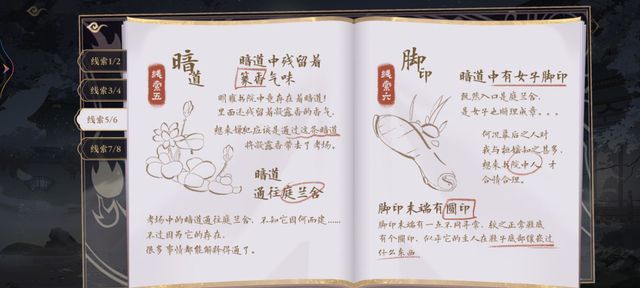 线索1/2
线索3/4
线索5/6
线索7/8
线索五
暗道
暗道中残留着
篆香气味
明雍书院中竟存在着暗道！
里面还残留着凝露香的香气，
想来嫌犯应该是通过这条暗道
将凝露香带去了考场。
暗道
通往庭兰舍
考场中的暗道通往庭兰舍，不知它因何而建……
不过因为它的存在，
很多事情都能解释得通了。
线索六
脚印
暗道中有女子脚印
既然入口是庭兰舍，
是女子也顺理成章。。。
何况幕后之人对
我与
知之甚多，
想来书院中人，才
合情合理。
脚印末端有圆印
脚印末端有一点不同寻常，较之正常鞋底
有个圆印，似乎它的主人在鞋子底部镶嵌过
什么东西